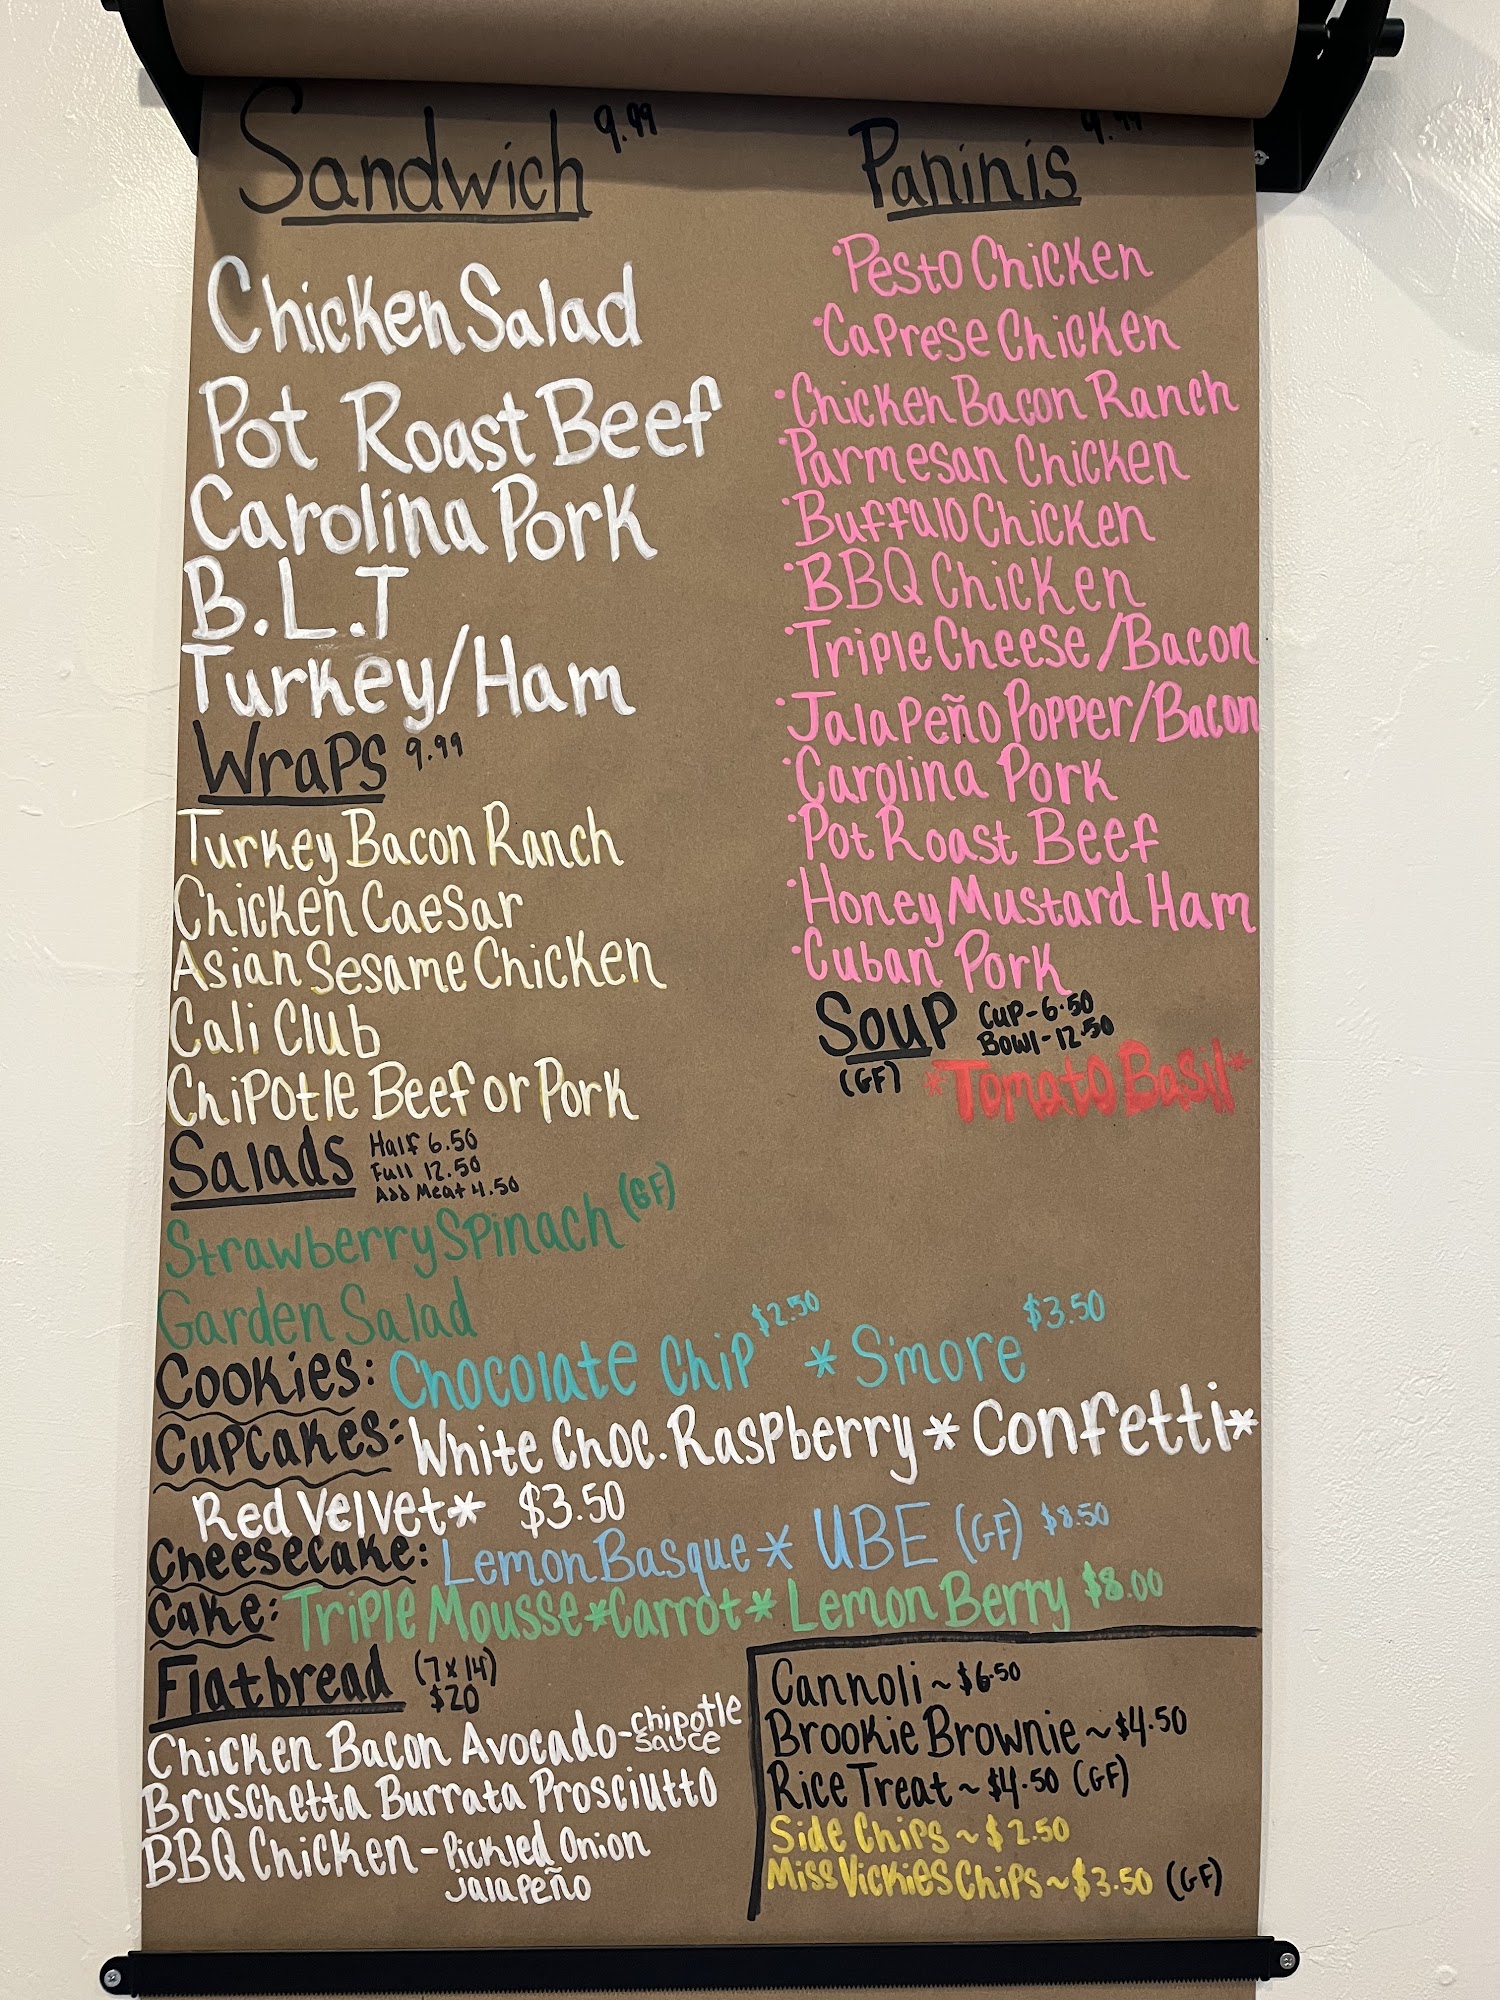 Sandwich 9.99
Chicken Salad
Pot Roast Beef
Carolina Pork
B.L.T
Turkey/Ham
Wraps 9.99
Turkey Bacon Ranch
Chicken Caesar
Asian Sesame Chicken
Cali Club
Chipotle Beef or Pork
Salads Half 6.50
Full 12.50
Add Meat 4.50
Strawberry Spinach (GF)
Garden Salad
Paninis 9.99
•Pesto Chicken
•Caprese Chicken
•Chicken Bacon Ranch
•Parmesan Chicken
•Buffalo Chicken
•BBQ Chicken
•Triple Cheese/Bacon
•Jalapeño Popper/Bacon
•Carolina Pork
•Pot Roast Beef
•Honey Mustard Ham
•Cuban Pork
Soup Cup-6.50
Bowl-12.50
(GF) *Tomato Basil*
Cookies: Chocolate Chip $2.50 * S'more $3.50
Cupcakes: White Choc. Raspberry * Confetti*
Red Velvet* $3.50
Cheesecake: Lemon Basque * UBE (GF) $8.50
Cake: Triple Mousse * Carrot * Lemon Berry $8.00
Flatbread (7x14)
$20
Chicken Bacon Avocado-chipotle sauce
Bruschetta Burrata Prosciutto
BBQ Chicken - Pickled Onion
Jalapeño
Cannoli ~ $6.50
Brookie Brownie ~ $4.50
Rice Treat ~ $4.50 (GF)
Side Chips ~ $2.50
Miss Vickies Chips ~ $3.50 (GF)